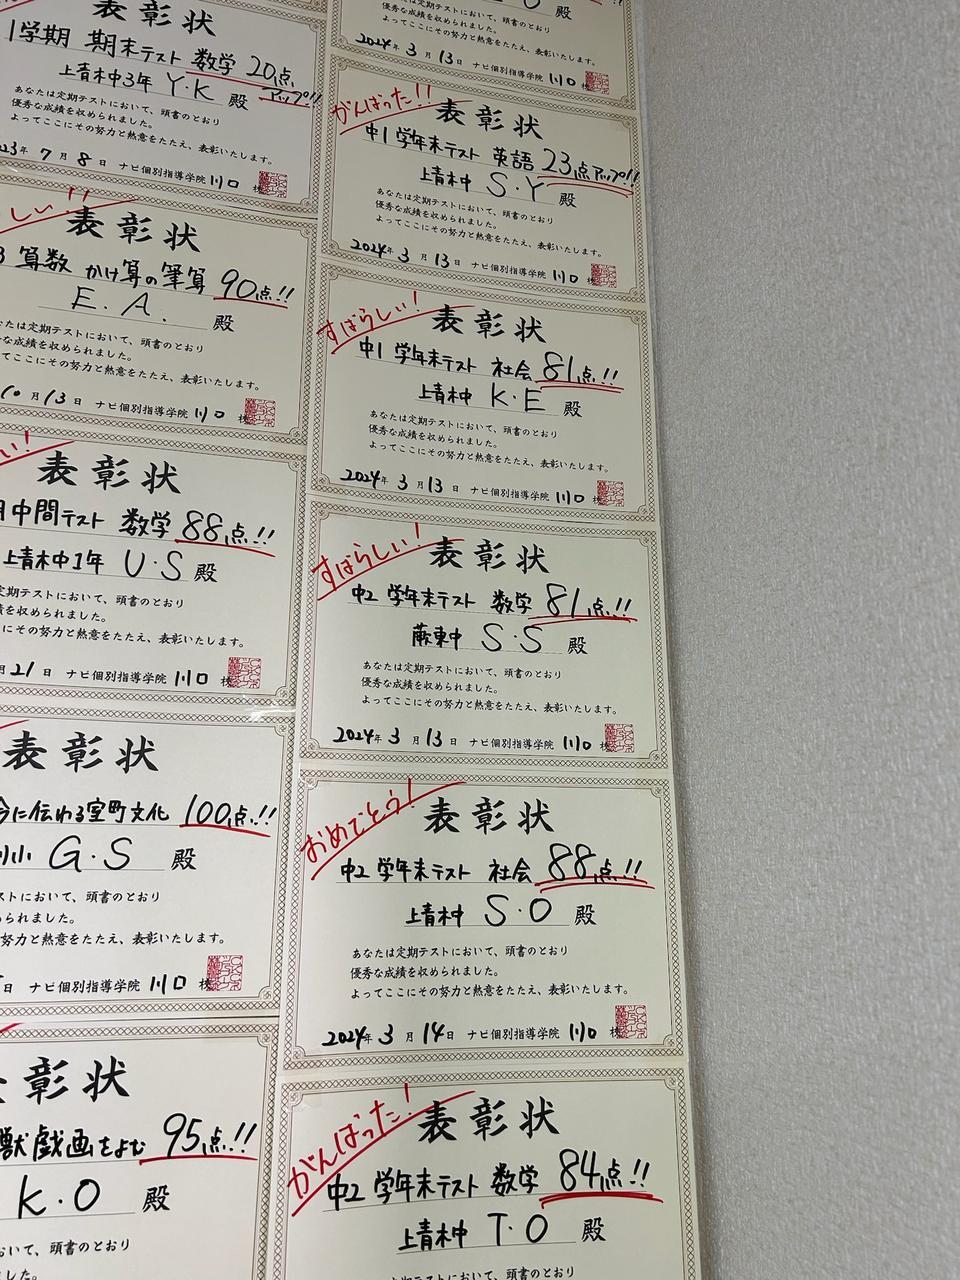 表彰状
1学期 期末テスト 数学 20点
アップ!!
上青木中3年 Y.K 殿
あなたは定期テストにおいて、頭書のとおり
優秀な成績を収められました。
よってここにその努力と熱意をたたえ、表彰いたします。
23年 7月 8日 ナビ個別指導学院 川口
しい!!
表彰状
算数 かけ算の筆算 90点!!
E.A. 殿
なたは定期テストにおいて、頭書のとおり
な成績を収められました。
てここにその努力と熱意をたたえ、表彰いたします。
10月13日 ナビ個別指導学院 川口
い!
表彰状
中間テスト 数学 88点!!
上青木中1年 U.S 殿
定期テストにおいて、頭書のとおり
を収められました。
にその努力と熱意をたたえ、表彰いたします。
月21日 ナビ個別指導学院 川口
表彰状
今に伝わる室町文化 100点!!
G.S 殿
ストにおいて、頭書のとおり
られました。
努力と熱意をたたえ、表彰いたします。
日 ナビ個別指導学院 川口
彰状
獣戯画をよむ 95点!!
K.O 殿
おいて、頭書のとおり
した。
殿
優秀な成績を収められました。
よってここにその努力と熱意をたたえ、表彰いたします。
2024年 3月 13日 ナビ個別指導学院 川口
がんばった!!
表彰状
中1 学年末テスト 英語 23点アップ!!
上青木中 S.Y 殿
あなたは定期テストにおいて、頭書のとおり
優秀な成績を収められました。
よってここにその努力と熱意をたたえ、表彰いたします。
2024年 3月 13日 ナビ個別指導学院 川口
すばらしい!
表彰状
中1 学年末テスト 社会 81点!!
上青木中 K.E 殿
あなたは定期テストにおいて、頭書のとおり
優秀な成績を収められました。
よってここにその努力と熱意をたたえ、表彰いたします。
2024年 3月 13日 ナビ個別指導学院 川口
すばらしい!
表彰状
中2 学年末テスト 数学 81点!!
蕨東中 S.S 殿
あなたは定期テストにおいて、頭書のとおり
優秀な成績を収められました。
よってここにその努力と熱意をたたえ、表彰いたします。
2024年 3月 13日 ナビ個別指導学院 川口
おめでとう!
表彰状
中2 学年末テスト 社会 88点!!
上青木中 S.O 殿
あなたは定期テストにおいて、頭書のとおり
優秀な成績を収められました。
よってここにその努力と熱意をたたえ、表彰いたします。
2024年 3月 14日 ナビ個別指導学院 川口
がんばった!
表彰状
中2 学年末テスト 数学 84点!!
上青木中 T.O 殿